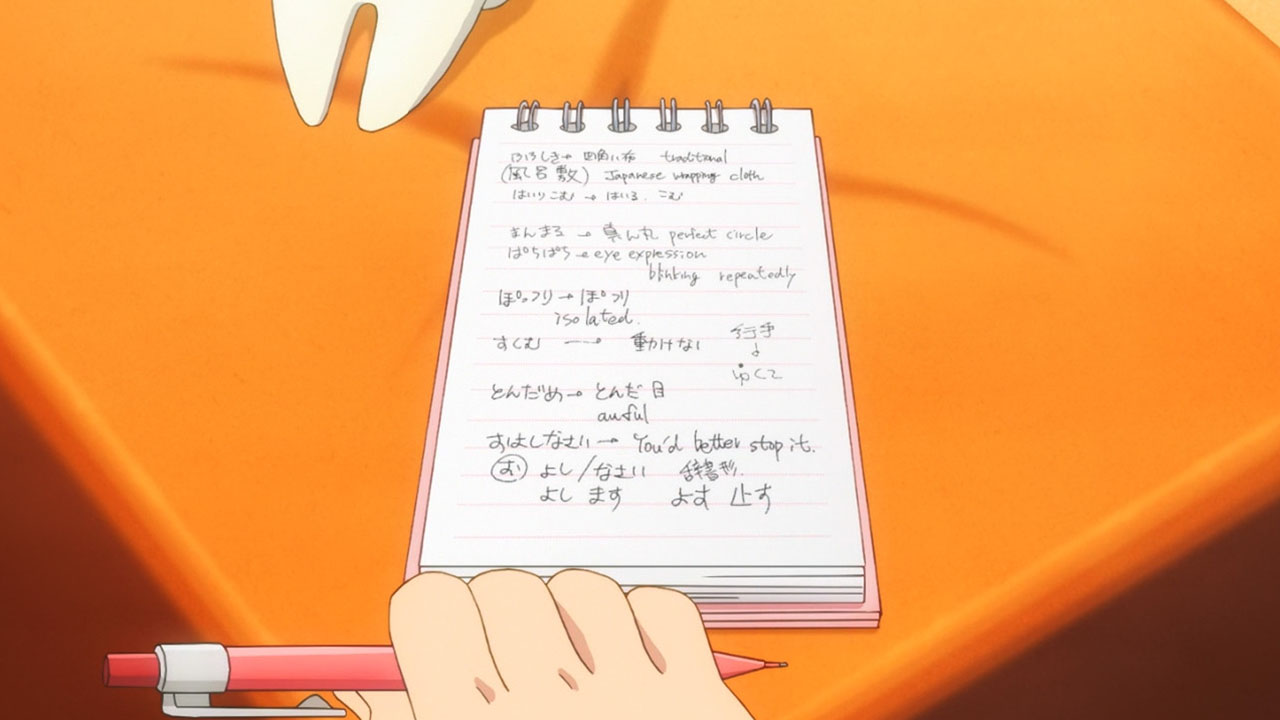 ふろしき→四角い布 traditional
(風呂敷) Japanese wrapping cloth
はいりこむ→はいる、こむ
まんまる→真ん丸 perfect circle
ぱちぱち→eye expression
blinking repeatedly
ぽっつり→ぽつり
isolated.
すくむ→動けない
行手
↓
ゆくて
とんだめ→とんだ目
awful
およしなさい→You'd better stop it.
お よし/なさい 辞書形.
よします よす 止す